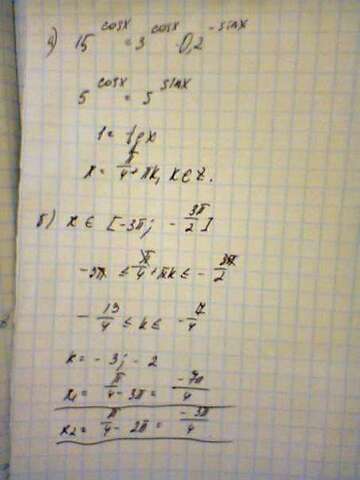 а) 15^cosx = 3^cosx · 0,2^-sinx
5^cosx = 5^sinx
1 = tgx
x = π/4 + πk, k∈z.
б) x ∈ [-3π; -3π/2]
-3π ≤ π/4 + πk ≤ -3π/2
-13/4 ≤ k ≤ -7/4
k = -3; -2
x₁ = π/4 - 3π = -7π/4
x₂ = π/4 - 2π = -3π/4